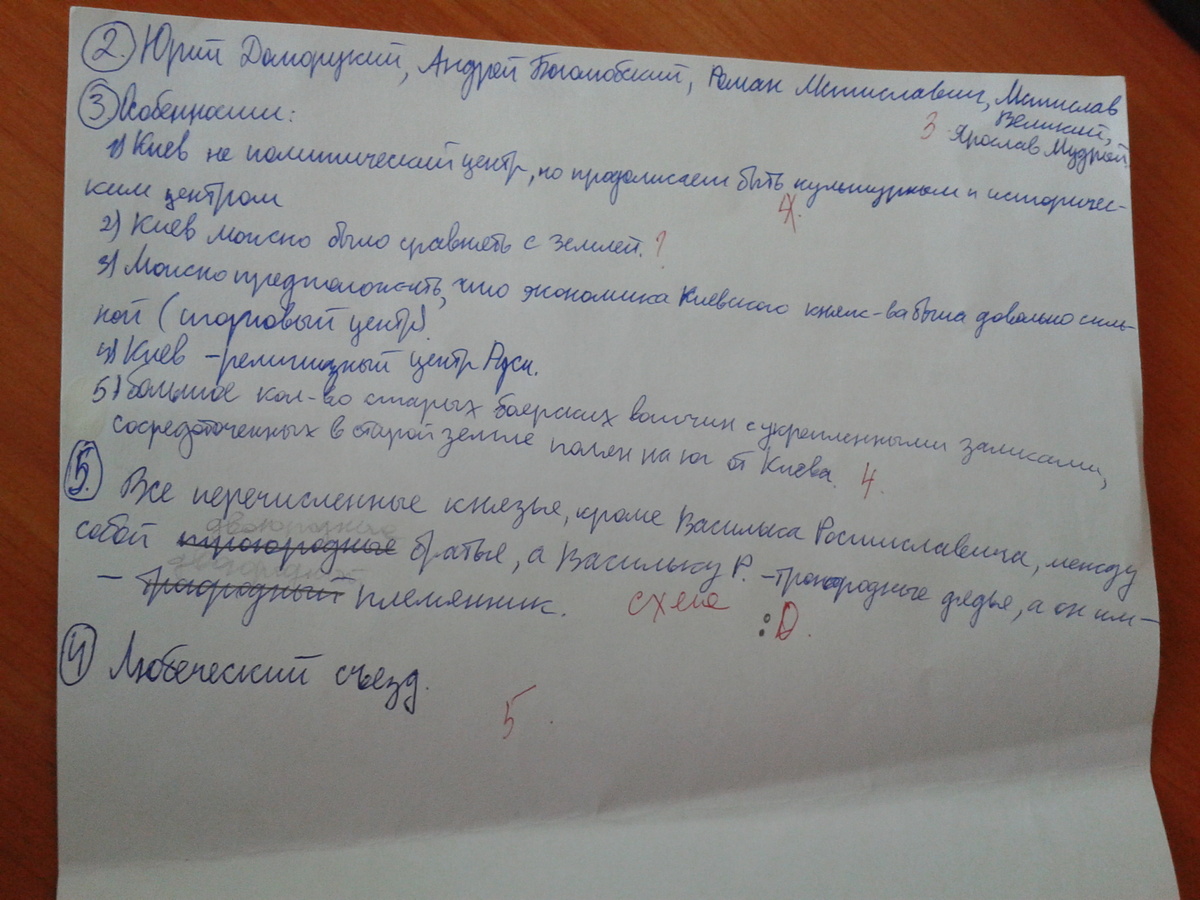 2. Юрий Долгорукий, Андрей Боголюбский, Роман Мстиславич, Мстислав
Великий,
3 Ярослав Мудрый
3 Особенности:
1) Киев не политический центр, но продолжает быть культурным и историчес-
ким центром
4.
2) Киев можно было сравнять с землей. ?
3) Можно предположить, что экономика Киевского княж-ва была довольно силь-
ной (торговый центр).
4) Киев – религиозный центр Руси.
5) большое кол-во старых боярских вотчин с укрепленными замками,
сосредоточенных в старой земле полян на юг от Киева. 4.
5. Все перечисленные князья, кроме Василька Ростиславича, между
двоюродные
собой троюродные братья, а Васильку Р. – троюродные дядья, а он им –
– троюродный племянник. схема :D.
4 Любеческий съезд.
5.